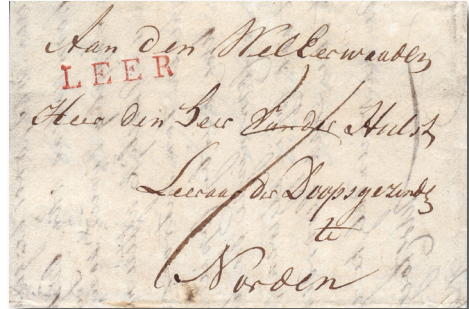 Aan den WelEerwaarden
LEER
Heer den Heer Vander Hulst
Leeraar der Doopsgezinde
te
Norden